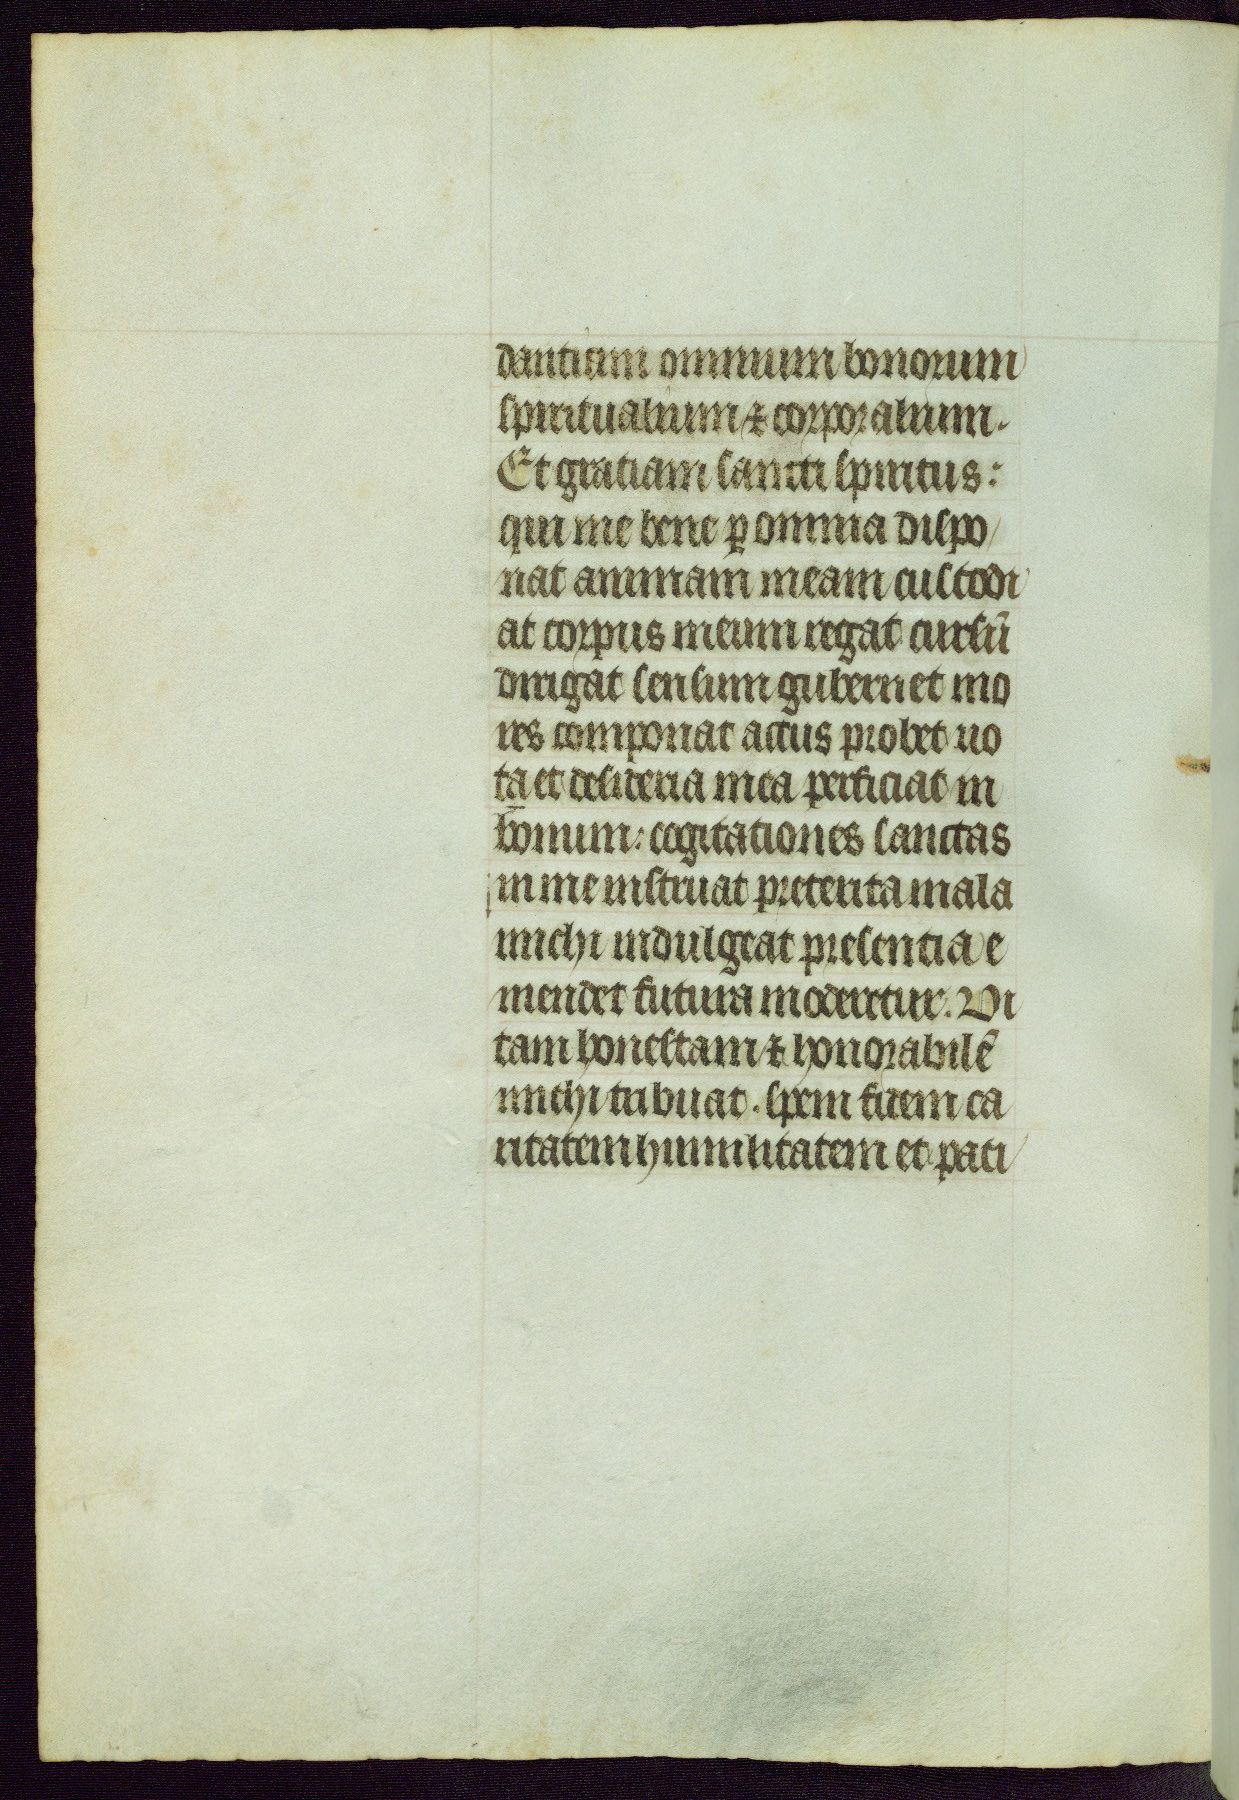 dantium omnium bonorum
spiritualium ⁊ corporalium.
Et gratiam sancti spiritus:
qui me bene ꝑ omnia dispo/
nat animam meam custodi
at corpus meum regat cursū
dirigat sensum gubernet mo
res componat actus probet uo
ta et desideria mea perficiat in
bonum: cogitationes sanctas
in me instruat preterita mala
michi indulgeat presentia e
mendet futura moderetur. Vi
tam honestam ⁊ honorabilē
michi tribuat. spem fidem ca
ritatem humilitatem et pati